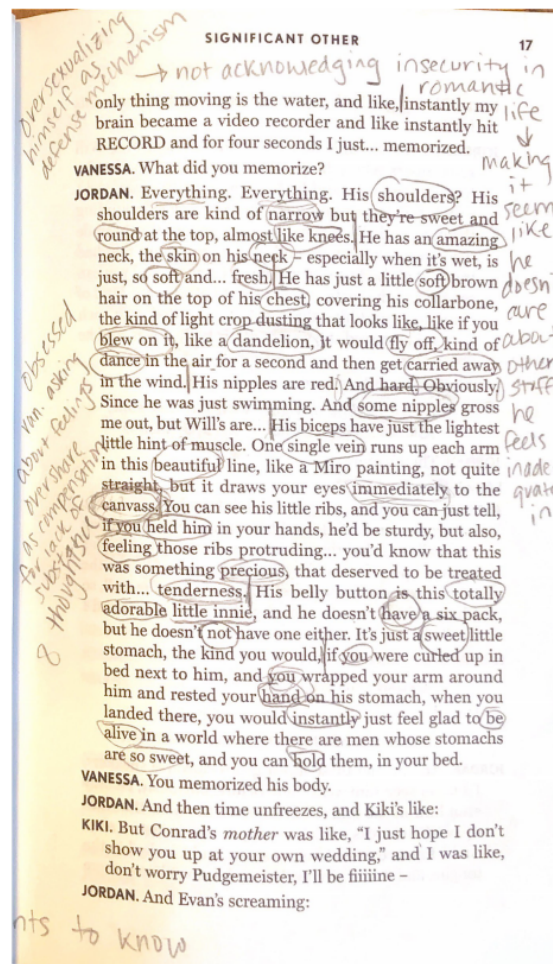 SIGNIFICANT OTHER
17
oversexualizing
himself as
defense mechanism
→ not acknowledging insecurity in
romantic
life
↓
making
it
seem
like
he
doesn't
care
about
other
stuff
he
feels
inade
quate
in
only thing moving is the water, and like, instantly my
brain became a video recorder and like instantly hit
RECORD and for four seconds I just... memorized.
VANESSA. What did you memorize?
JORDAN. Everything. Everything. His shoulders? His
shoulders are kind of narrow but they're sweet and
round at the top, almost like knees. He has an amazing
neck, the skin on his neck – especially when it's wet, is
just, so soft and... fresh. He has just a little soft brown
hair on the top of his chest, covering his collarbone,
the kind of light crop dusting that looks like, like if you
blew on it, like a dandelion, it would fly off, kind of
dance in the air for a second and then get carried away
in the wind. His nipples are red. And hard. Obviously.
Since he was just swimming. And some nipples gross
me out, but Will's are... His biceps have just the lightest
little hint of muscle. One single vein runs up each arm
in this beautiful line, like a Miro painting, not quite
straight, but it draws your eyes immediately to the
canvass. You can see his little ribs, and you can just tell,
if you held him in your hands, he'd be sturdy, but also,
feeling those ribs protruding... you'd know that this
was something precious, that deserved to be treated
with... tenderness. His belly button is this totally
adorable little innie, and he doesn't have a six pack,
but he doesn't not have one either. It's just a sweet little
stomach, the kind you would, if you were curled up in
bed next to him, and you wrapped your arm around
him and rested your hand on his stomach, when you
landed there, you would instantly just feel glad to be
alive in a world where there are men whose stomachs
are so sweet, and you can hold them, in your bed.
VANESSA. You memorized his body.
JORDAN. And then time unfreezes, and Kiki's like:
KIKI. But Conrad's mother was like, "I just hope I don't
show you up at your own wedding," and I was like,
don't worry Pudgemeister, I'll be fiiiiine –
JORDAN. And Evan's screaming:
obsessed
van. asking
about feelings
overshare
as compensation
for lack of
substance
& thoughts
nts to know